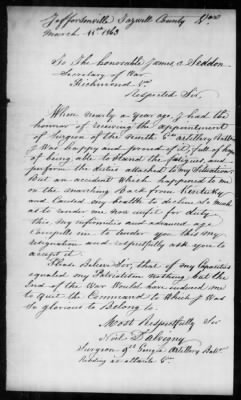 Jeffersonville Tazwell County Va
March 15th 1863
To The honorable James A Seddon
Secretary of War
Richmond Va
Respected Sir,
When nearly a year ago I had the
honour of receiving the appointment
of Surgeon of the Ninth Ga Artillery Battn
I Was happy and proud of it, full of hope
of being able to Stand the fatigues, and
perform the duties attached to my Situation.
But an accident Which happened to me
on the marching Back from Kentucky
and Caused my health to decline So much
as to render me now unfit for duty
this My infirmities and advanced age
Compells me to tender you this my
resignation and respectfully ask you to
accept it.
Please Believe Sir, that if my Capacities
equaled my Patriotism nothing but the
End of the War Would have induced me
to Quit the Command to Which I Was
So glorious to Belong to.
Most Respectfully Sir
Noel D'Alvigny
Surgeon 9th Georgia Artillery Battn
Residing in Atlanta Ga